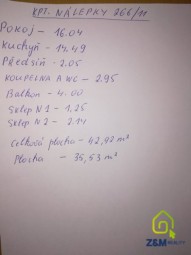 KPT. NÁLEPKY 266/11
Pokoj - 16.04
Kuchyň - 14.49
Předsíň - 2.05
KOUPELNA A WC - 2.95
Balkon - 4.00
Sklep N1 - 1.25
Sklep N2 - 2.14
Celková plocha - 42,92 m²
Plocha - 35,53 m²
Z&M REALITY